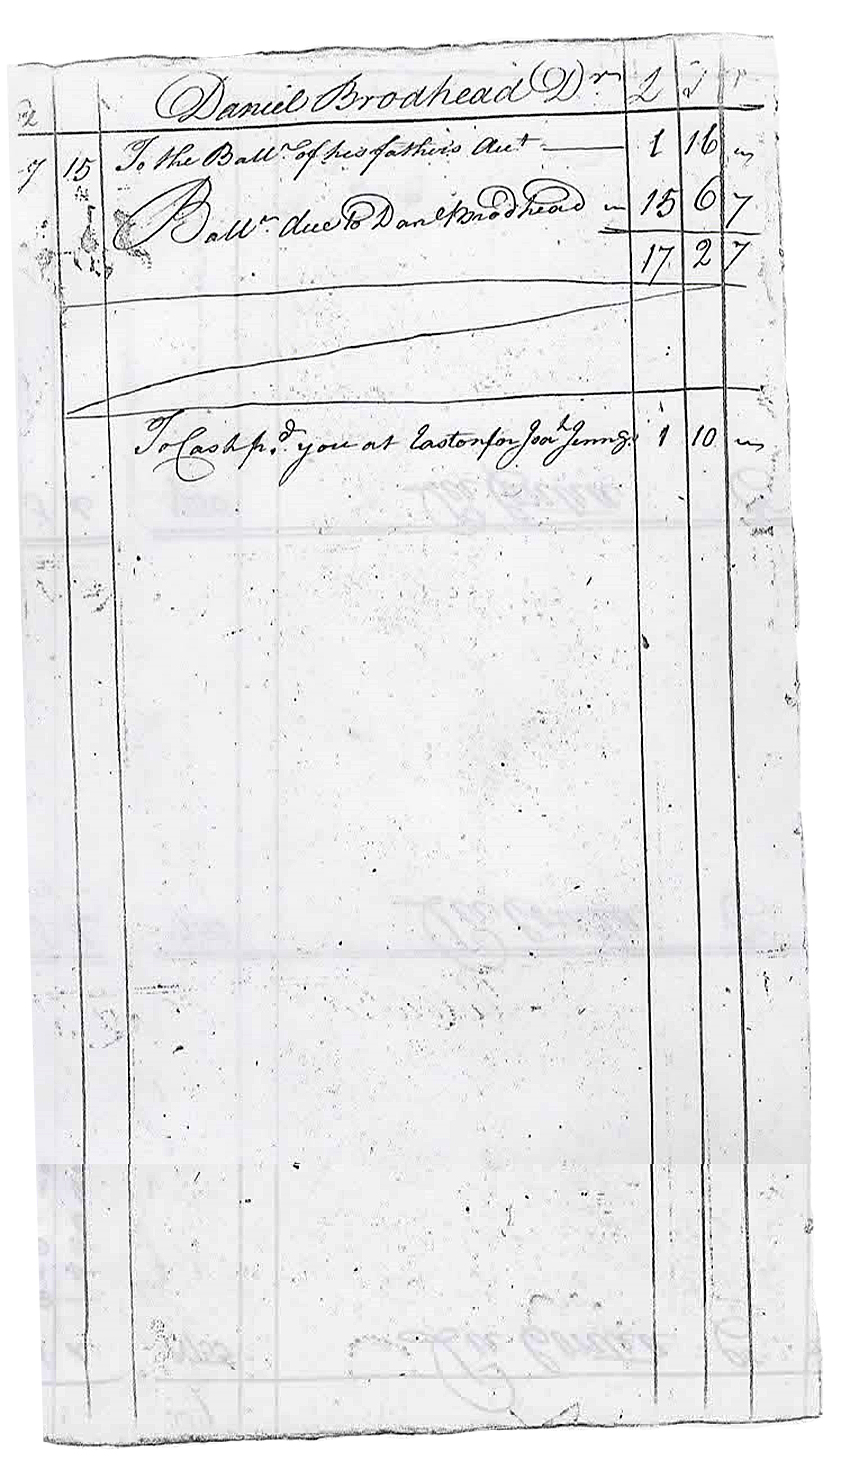 Daniel Brodhead Dr £ S P
7 15 To the Ballce of his fathers Acct 1 16 "
Ballce due to Danl Brodhead " 15 6 7
17 2 7
To Cash pd. you at Easton for Jos.h Jenngs 1 10 "